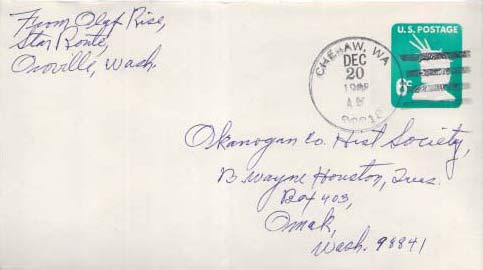 From Olaf Rise,
Star Route,
Oroville, Wash.
U.S. POSTAGE
6c
CHESAW, WA
DEC
20
AM
Okanogan Co. Hist Society,
B. Wayne Houston, Treas.
Box 403,
Omak,
Wash. 98841